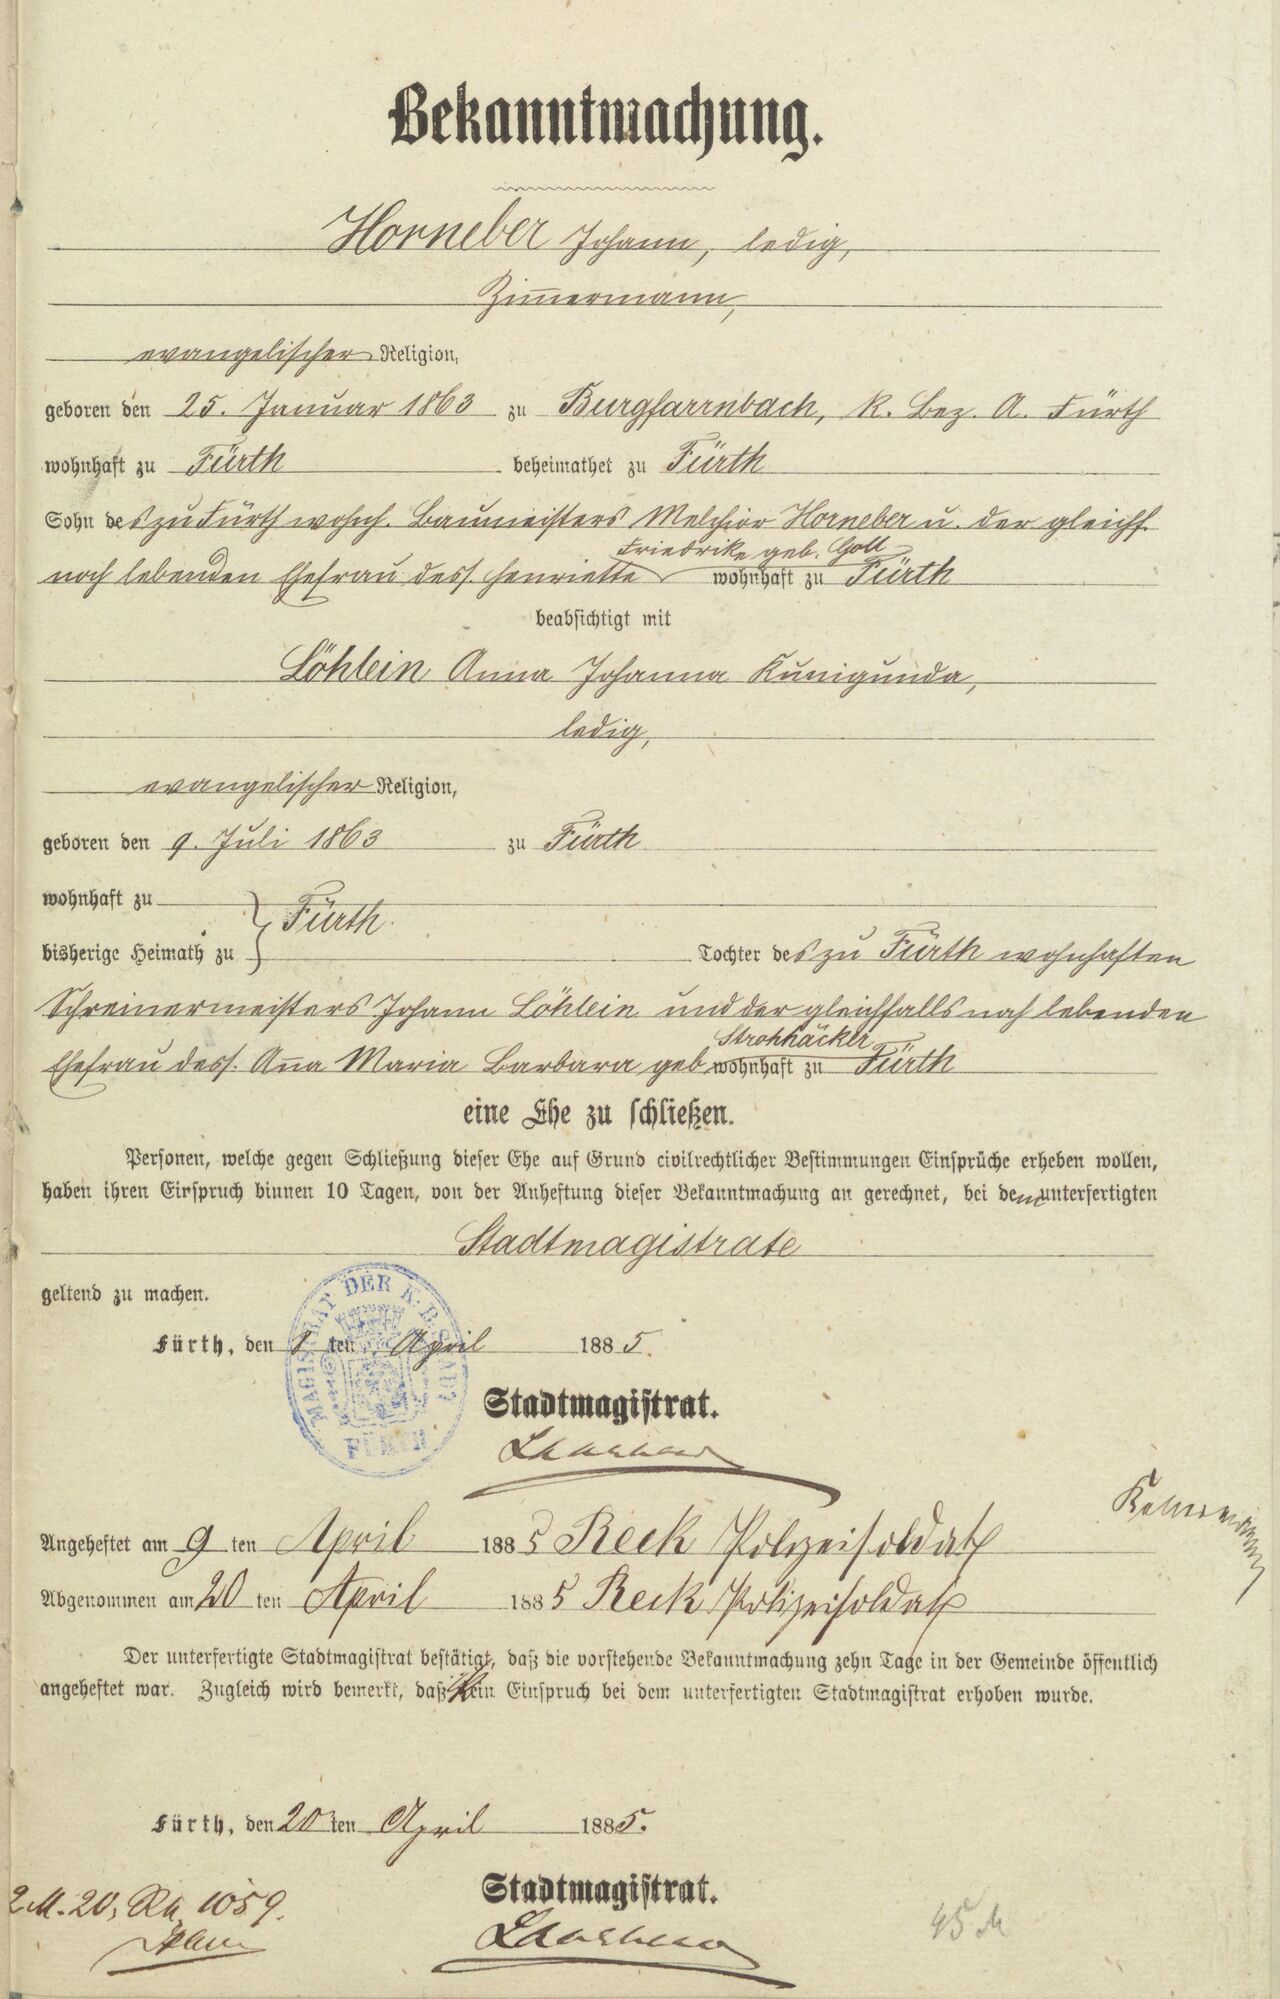 Bekanntmachung.
Horneber Johann, ledig,
Zimmermann,
evangelischer Religion,
geboren den 25. Januar 1863 zu Burgfarrnbach, K. Bez. A. Fürth
wohnhaft zu Fürth beheimathet zu Fürth
Sohn des zu Fürth wohnh. Baumeisters Melchior Horneber u. der gleichf.
Friedrike geb. Goll
noch lebenden Ehefrau dess. Henriette wohnhaft zu Fürth
beabsichtigt mit
Löhlein Anna Johanna Kunigunda,
ledig,
evangelischer Religion,
geboren den 9. Juli 1863 zu Fürth
wohnhaft zu
Fürth.
bisherige Heimath zu Tochter des zu Fürth wohnhaften
Schreinermeisters Johann Löhlein und der gleichfalls noch lebenden
Strohhäcker
Ehefrau dess. Anna Maria Barbara geb wohnhaft zu Fürth
eine Ehe zu schließen.
Personen, welche gegen Schließung dieser Ehe auf Grund civilrechtlicher Bestimmungen Einsprüche erheben wollen,
haben ihren Einspruch binnen 10 Tagen, von der Anheftung dieser Bekanntmachung an gerechnet, bei dem unterfertigten
Stadtmagistrate
geltend zu machen.
MAGISTRAT DER K. B. STADT FÜRTH
Fürth, den ten April 1885.
Stadtmagistrat.
Angeheftet am 9 ten April 1885 Reck Polizeisoldat
Abgenommen am 20 ten April 1885 Reck Polizeisoldat
Der unterfertigte Stadtmagistrat bestätigt, daß die vorstehende Bekanntmachung zehn Tage in der Gemeinde öffentlich
angeheftet war. Zugleich wird bemerkt, daß kein Einspruch bei dem unterfertigten Stadtmagistrat erhoben wurde.
Fürth, den 20 ten April 1885.
Stadtmagistrat.
2 M. 20, 1059.